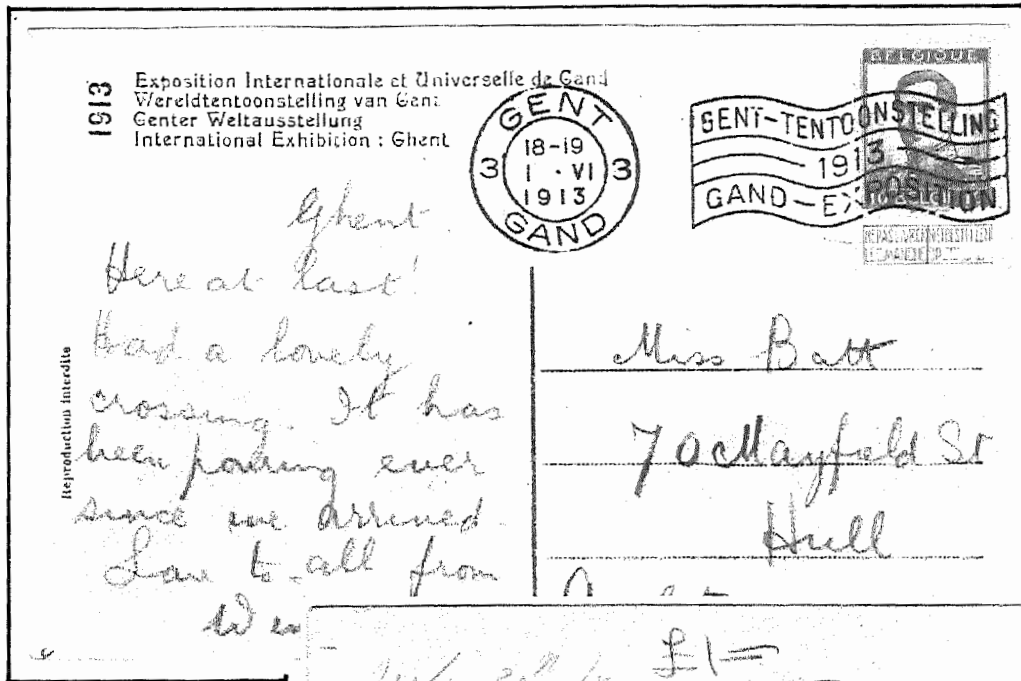 1913
Exposition Internationale et Universelle de Gand
Wereldtentoonstelling van Gent
Genter Weltausstellung
International Exhibition : Ghent
GENT
3 18-19 3
1 · VI
1913
GAND
BELGIQUE
GENT-TENTOONSTELLING
1913
GAND-EXPOSITION
Ghent
Here at last!
Had a lovely
crossing. It has
been pouring ever
since we arrived.
Love to all from
Reproduction interdite
Miss Batt
70 Mayfield St
Hull
£1=